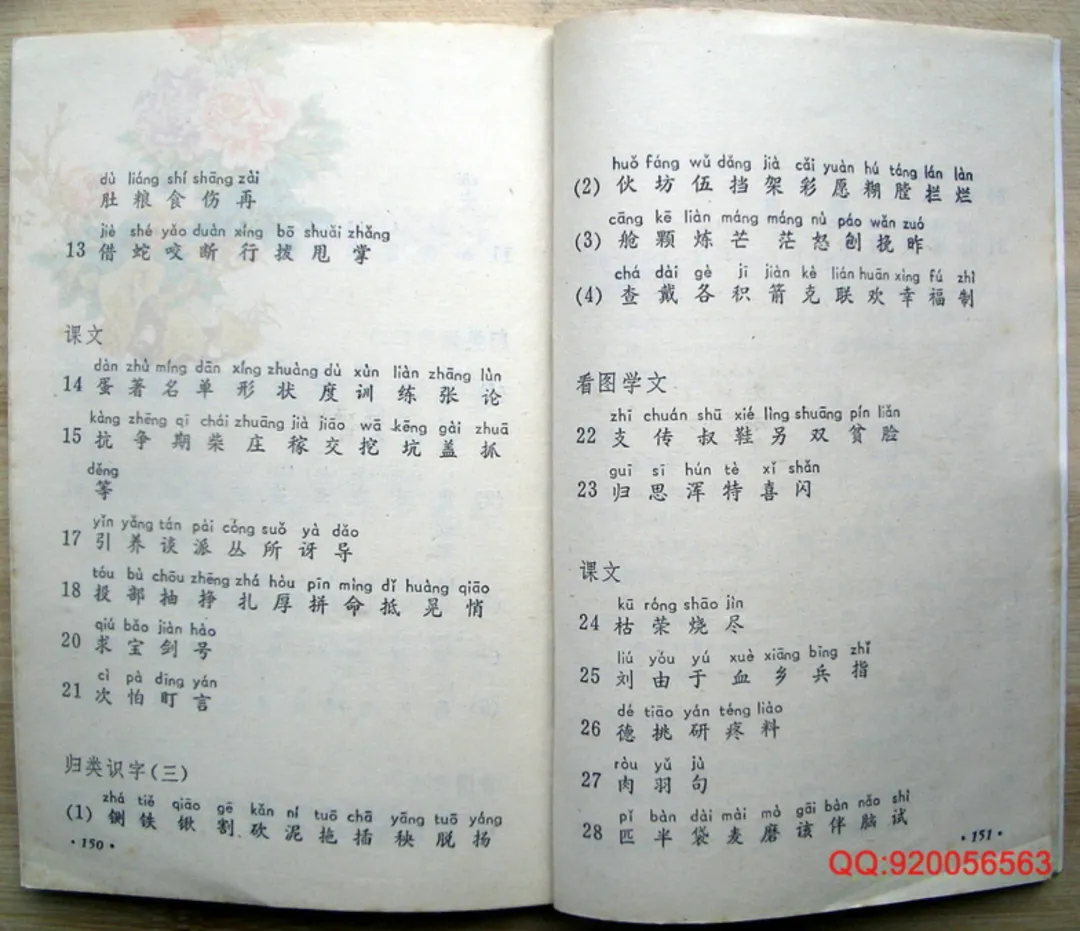 dù liáng shí shāng zài
肚 粮 食 伤 再
jiè shé yǎo duàn xíng bō shuǎi zhǎng
13 借 蛇 咬 断 行 拨 甩 掌
课文
dàn zhù míng dān xíng zhuàng dù xùn liàn zhāng lùn
14 蛋 著 名 单 形 状 度 训 练 张 论
kàng zhēng qī chái zhuāng jià jiāo wā kēng gài zhuā
15 抗 争 期 柴 庄 稼 交 挖 坑 盖 抓
děng
等
yǐn yǎng tán pài cóng suǒ yà dǎo
17 引 养 谈 派 丛 所 讶 导
tóu bù chōu zhēng zhá hòu pīn mìng dǐ huàng qiāo
18 投 部 抽 挣 扎 厚 拼 命 抵 晃 悄
qiú bǎo jiàn hào
20 求 宝 剑 号
cì pà dīng yán
21 次 怕 盯 言
归类识字(三)
zhá tiě qiāo gē kǎn ní tuō chā yāng tuō yáng
(1) 铡 铁 锹 割 砍 泥 拖 插 秧 脱 扬
·150·
huǒ fáng wǔ dǎng jià cǎi yuàn hú táng lán làn
(2) 伙 坊 伍 挡 架 彩 愿 糊 膛 拦 烂
cāng kē liàn máng máng nù páo wǎn zuó
(3) 舱 颗 炼 芒 茫 怒 刨 挽 昨
chá dài gè jī jiàn kè lián huān xìng fú zhì
(4) 查 戴 各 积 箭 克 联 欢 幸 福 制
看图学文
zhī chuán shū xié lìng shuāng pín liǎn
22 支 传 叔 鞋 另 双 贫 脸
guī sī hún tè xǐ shǎn
23 归 思 浑 特 喜 闪
课文
kū róng shāo jìn
24 枯 荣 烧 尽
liú yóu yú xuè xiāng bīng zhǐ
25 刘 由 于 血 乡 兵 指
dé tiāo yán téng liào
26 德 挑 研 疼 料
ròu yǔ jù
27 肉 羽 句
pǐ bàn dài mài mò gāi bàn nǎo shì
28 匹 半 袋 麦 磨 该 伴 脑 试
·151·
QQ:920056563